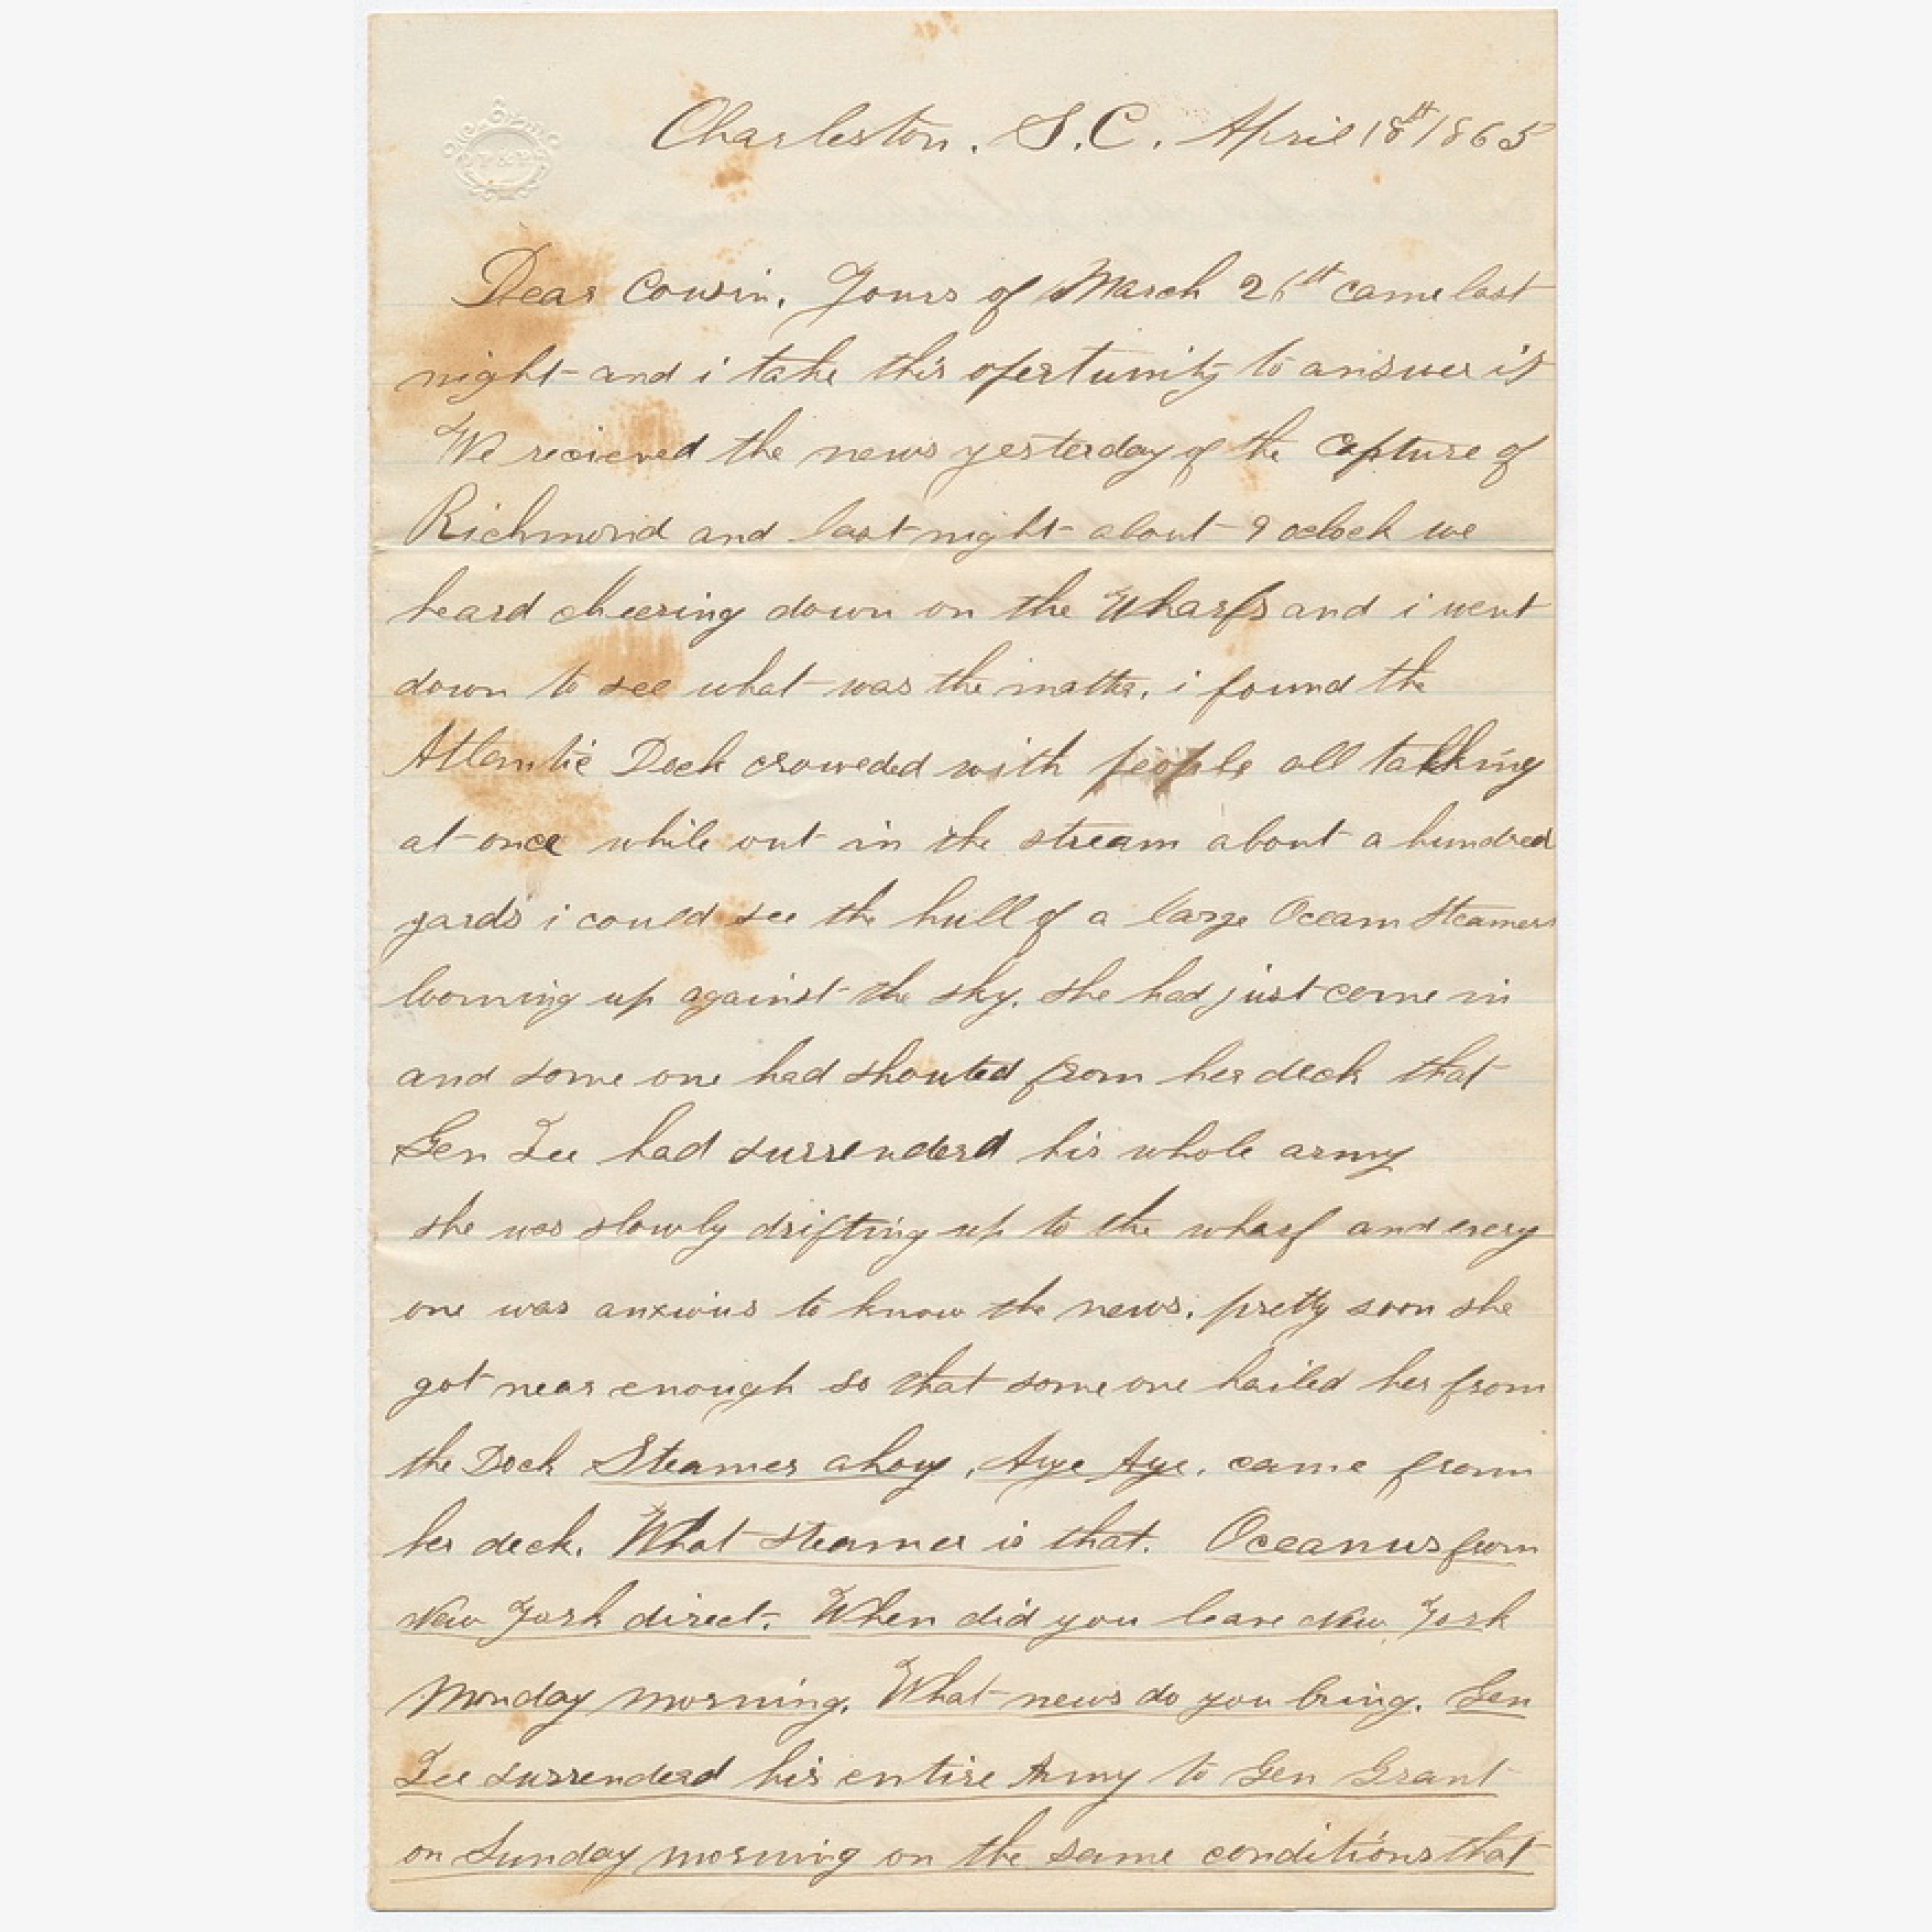 Charleston. S.C. April 18th 1865
Dear Cousin. Yours of March 26th came last
night and i take this opertunity to answer it
We recieved the news yesterday of the Capture of
Richmond and last night about 9 oclock we
heard cheering down on the Wharfs and i went
down to see what was the matter. i found the
Atlantic Dock croweded with people all talking
at once while out in the stream about a hundred
yards i could see the hull of a large Ocean Steamer
looming up against the sky. she had just come in
and some one had shouted from her deck that
Gen Lee had surrenderd his whole army
she was slowly drifting up to the wharf and every
one was anxious to know the news. pretty soon she
got near enough so that some one hailed her from
the Dock Steamer ahoy. Aye Aye. came from
her deck. What steamer is that. Oceanus from
New York direct. When did you leave New York
Monday morning. What news do you bring. Gen
Lee surrenderd his entire Army to Gen Grant
on Sunday morning on the same conditions that